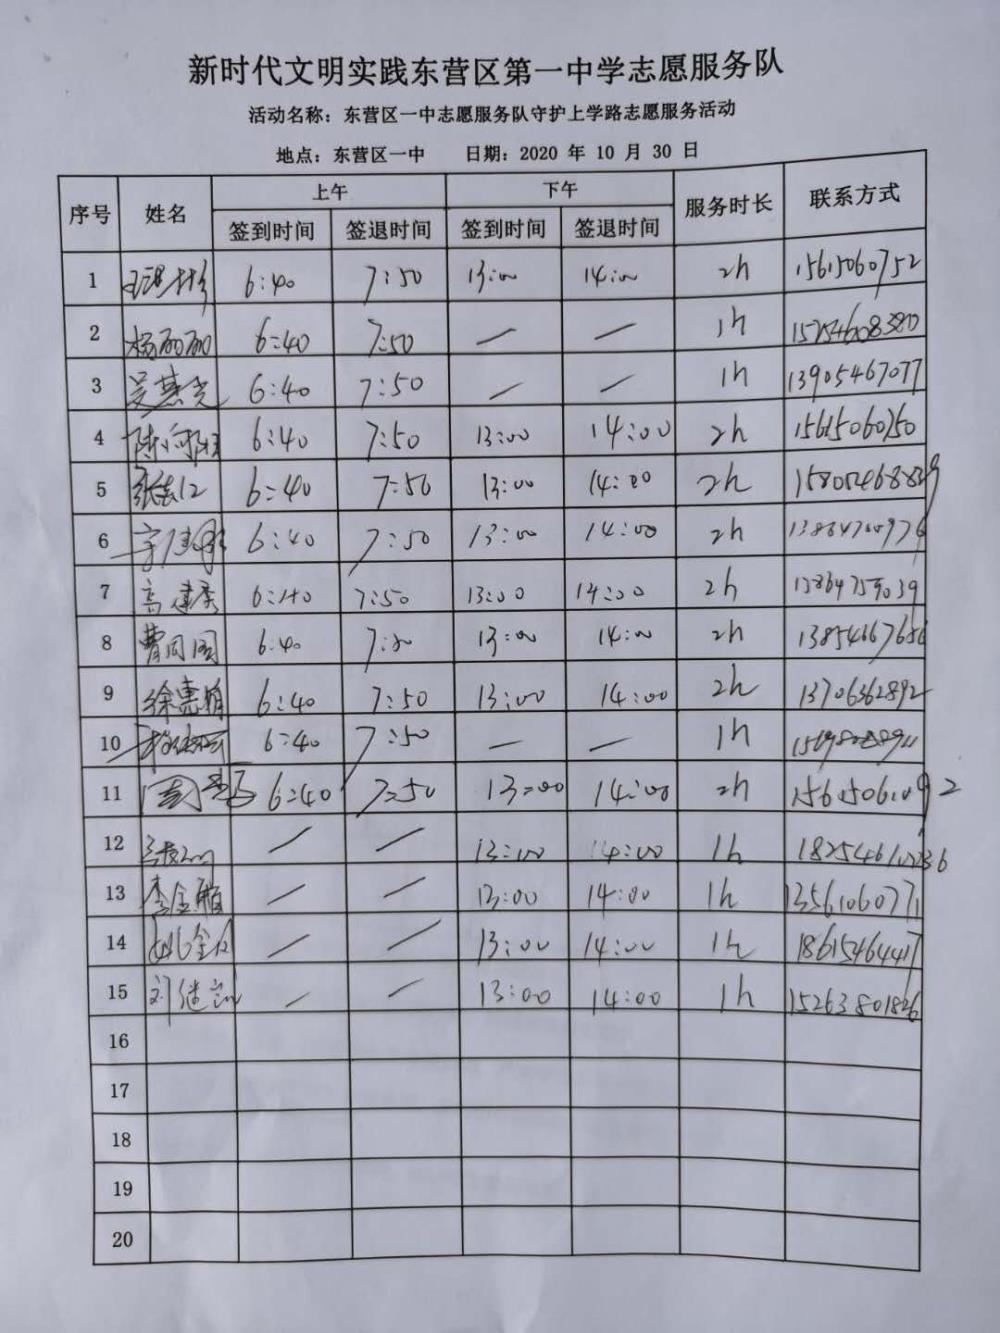 新时代文明实践东营区第一中学志愿服务队
活动名称：东营区一中志愿服务队守护上学路志愿服务活动
地点：东营区一中 日期：2020 年 10 月 30 日
序号 姓名 上午 下午 服务时长 联系方式
签到时间 签退时间 签到时间 签退时间
1 6:40 7:50 13:00 14:00 2h 15615060752
2 杨丽丽 6:40 7:50 — — 1h 15754608380
3 吴慧光 6:40 7:50 — — 1h 13905467077
4 6:40 7:50 13:00 14:00 2h 15615060750
5 6:40 7:50 13:00 14:00 2h
6 6:40 7:50 13:00 14:00 2h
7 高建秀 6:40 7:50 13:00 14:00 2h
8 曹同国 6:40 7:50 13:00 14:00 2h 13854667656
9 徐惠娟 6:40 7:50 13:00 14:00 2h 13706362892
10 6:40 7:50 — — 1h
11 6:40 7:50 13:00 14:00 2h 15615061092
12 — — 13:00 14:00 1h
13 李金顺 — — 13:00 14:00 1h 13561060771
14 — — 13:00 14:00 1h 18615464417
15 — — 13:00 14:00 1h 15263801826
16
17
18
19
20